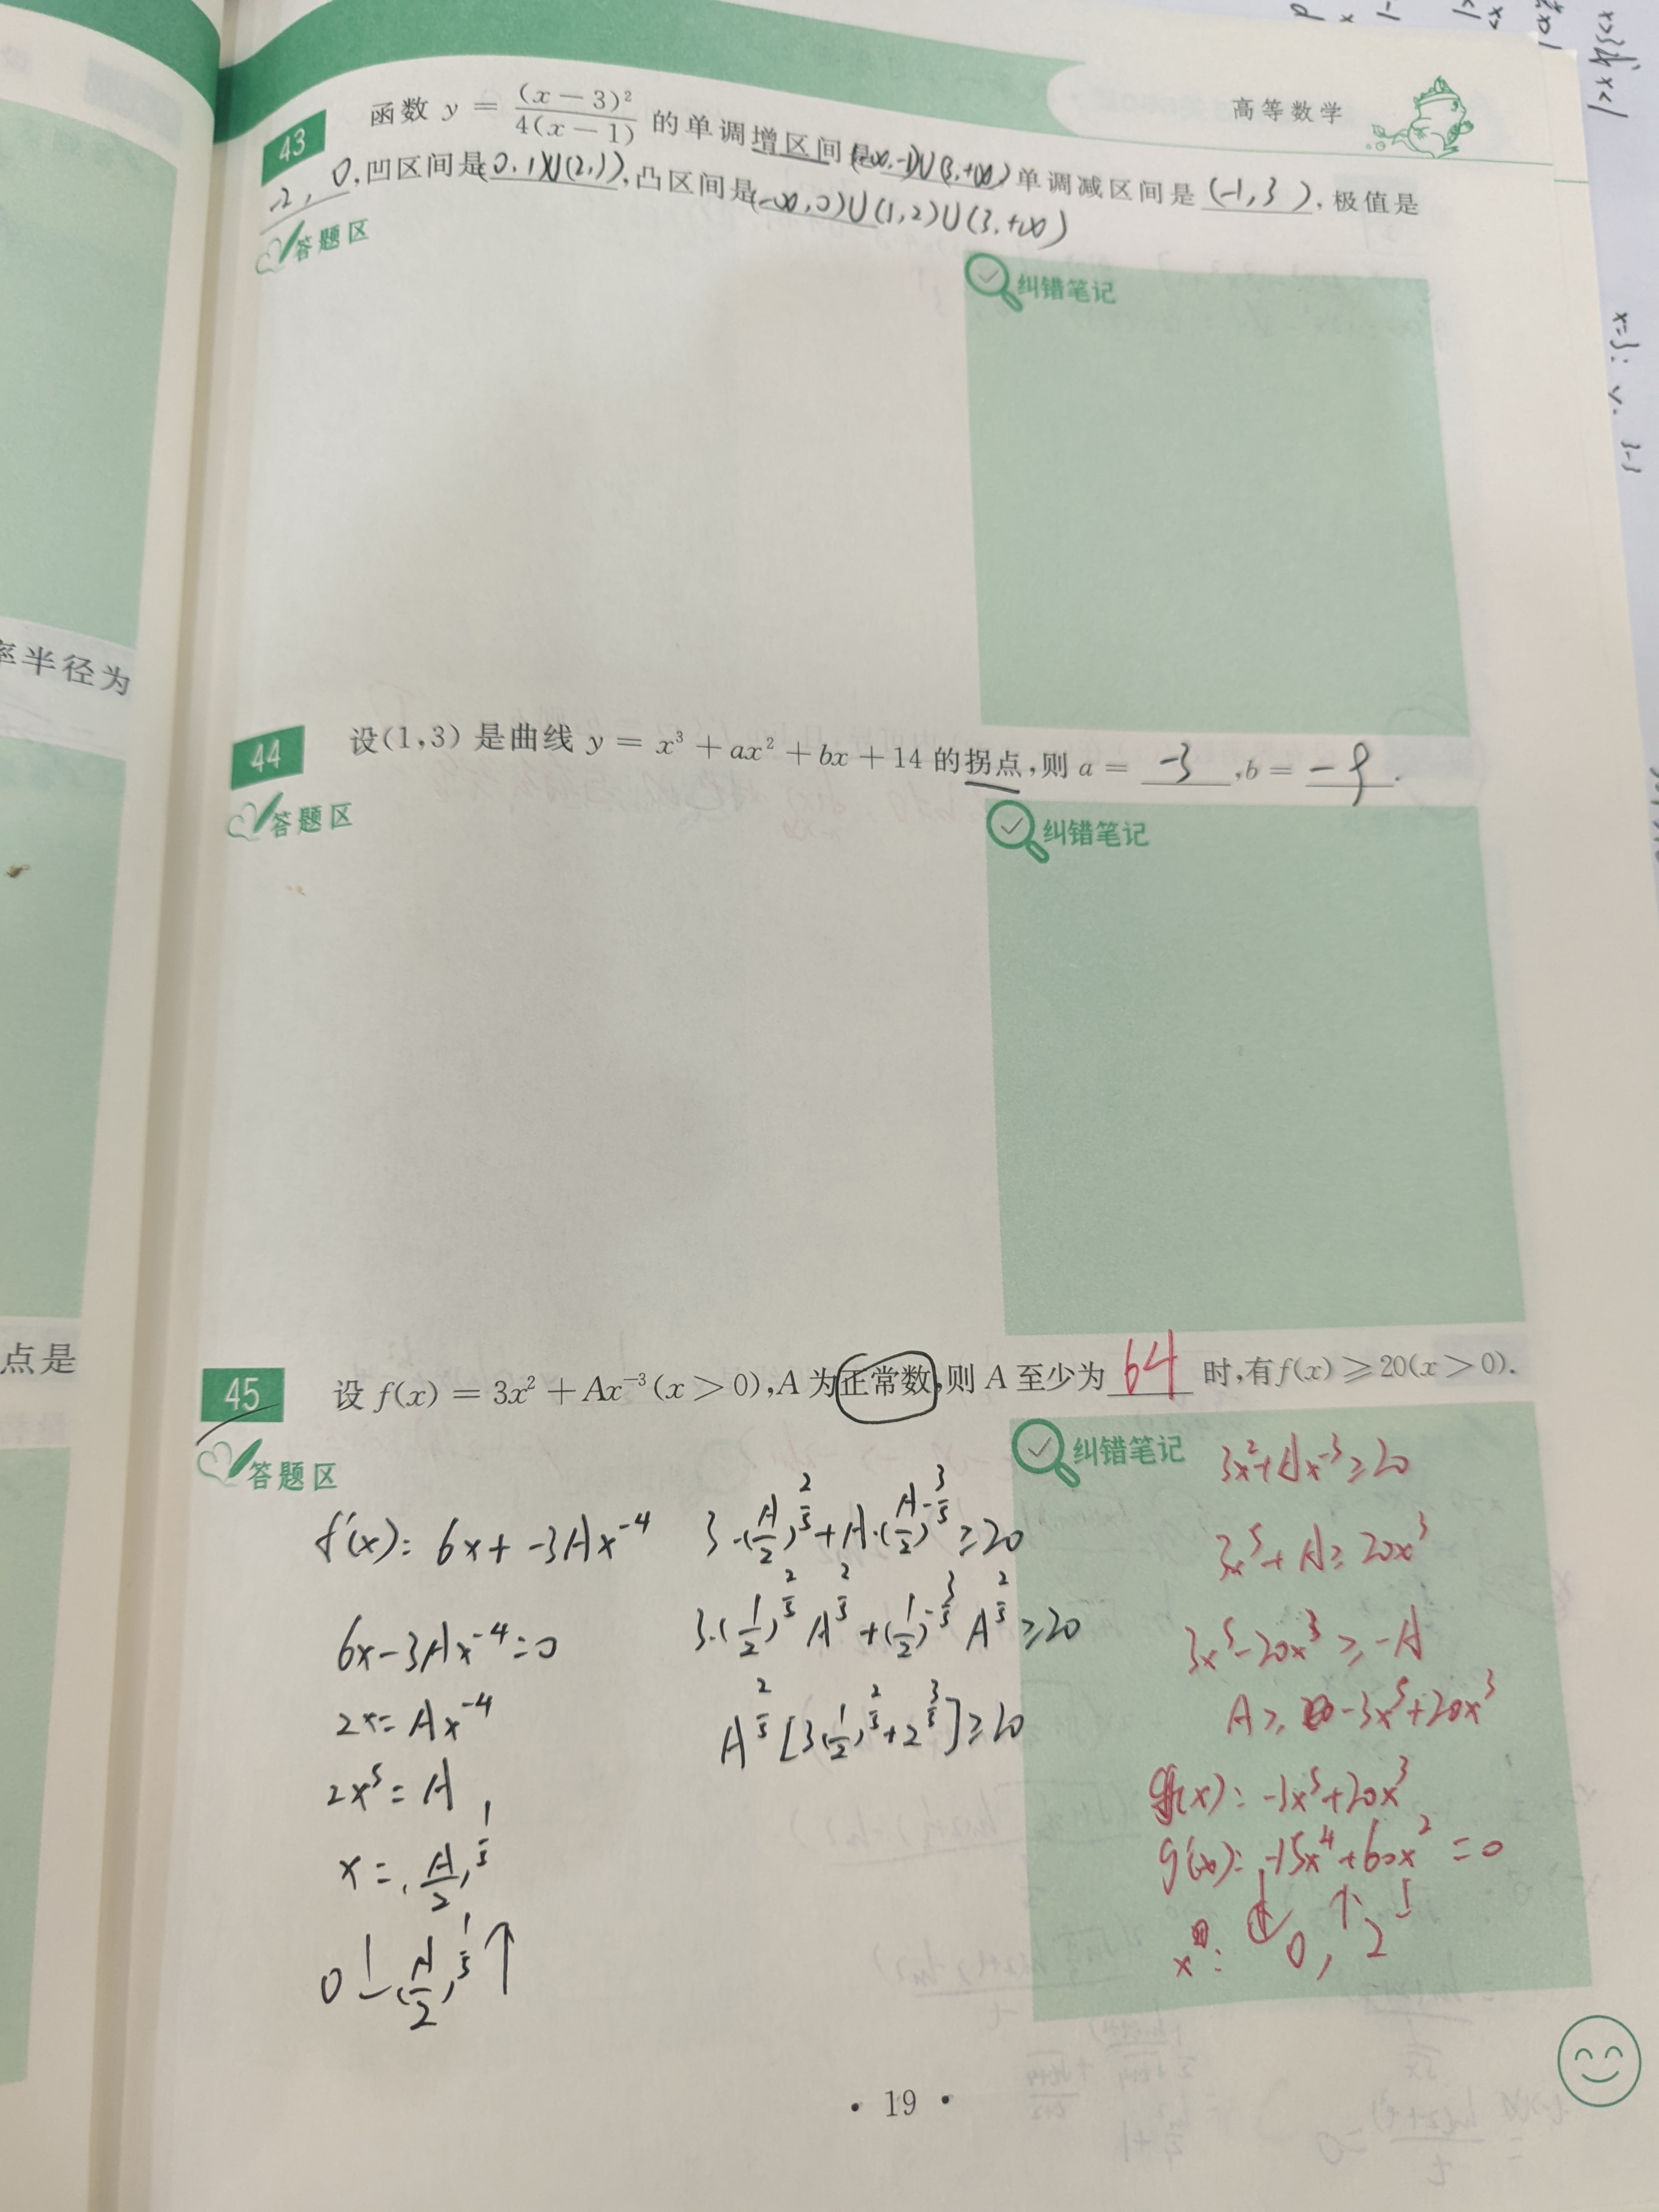 高等数学
43 函数 y = (x-3)²/4(x-1) 的单调增区间是(-∞,-1)∪(3,+∞),单调减区间是(-1,3),极值是
-2, 0,凹区间是(0,1)∪(2,3),凸区间是(-∞,0)∪(1,2)∪(3,+∞)
答题区
纠错笔记
率半径为
44 设(1,3)是曲线 y = x³ + ax² + bx + 14 的拐点,则 a = -3,b = -9.
答题区
纠错笔记
点是
45 设 f(x) = 3x² + Ax⁻³(x > 0),A 为正常数,则 A 至少为 64 时,有 f(x) ⩾ 20(x > 0).
答题区
f'(x): 6x+-3Ax⁻⁴
6x-3Ax⁻⁴=0
2x=Ax⁻⁴
2x⁵=A
x=(A/2)^(1/5)
0 ↓ (A/2)^(1/5) ↑
3·(A/2)^(2/5)+A·(A/2)^(-3/5)≥20
3·(1/2)^(2/5) A^(2/5)+(1/2)^(-3/5) A^(2/5)≥20
A^(2/5)[3(1/2)^(2/5)+2^(3/5)]≥20
纠错笔记
3x²+Ax⁻³≥20
3x⁵+A≥20x³
3x⁵-20x³≥-A
A≥-3x⁵+20x³
g(x): -3x⁵+20x³
g'(x): -15x⁴+60x²=0
x: ↓ 0, ↑ 2 ↓
· 19 ·